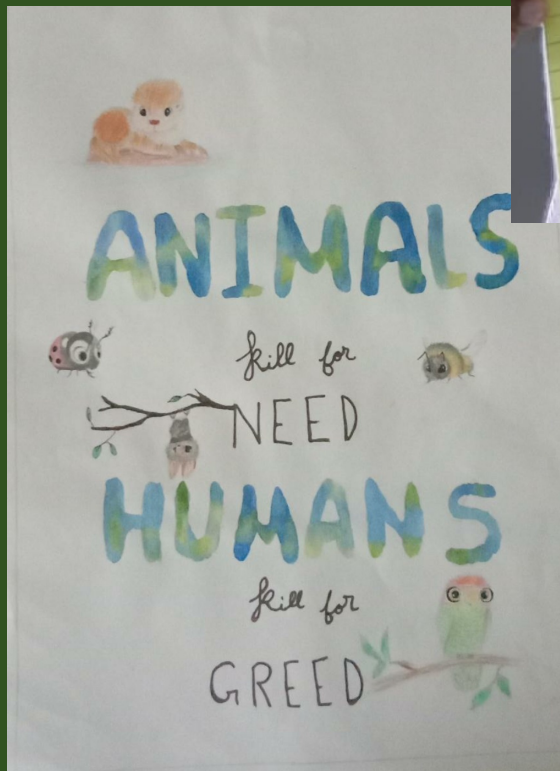 ANIMALS
kill for
NEED
HUMANS
kill for
GREED